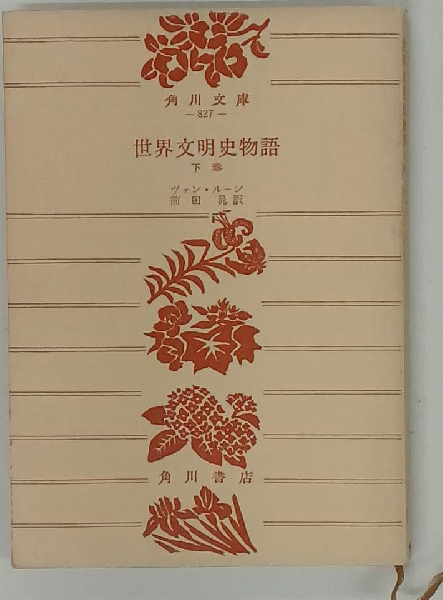 角川文庫
— 827 —
世界文明史物語
下巻
ヴァン・ルーン
前田晁訳
角川書店